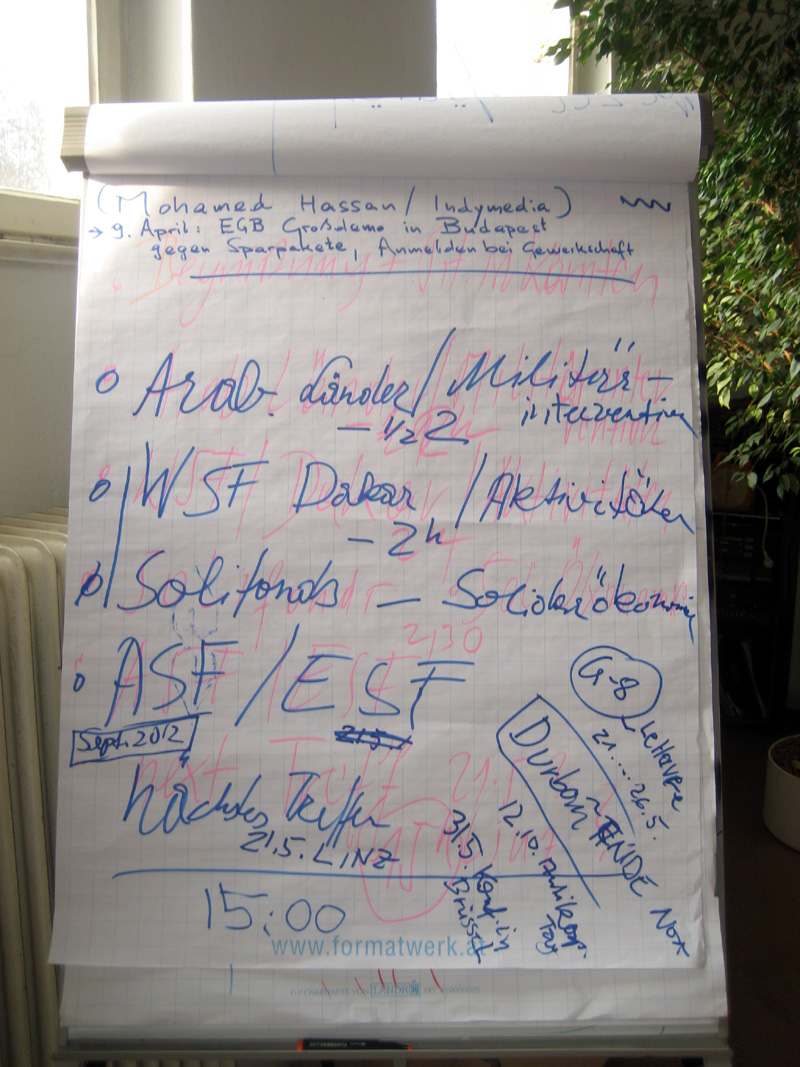 (Mohamed Hassan / Indymedia)
→ 9. April: EGB Großdemo in Budapest
gegen Sparpakete, Anmelden bei Gewerkschaft
o Arab. Länder / Militär-
intervention
- 1/2 2
o WSF Dakar / Aktivitäten
- 2h
o Solifonds - Solidarökonomie
2,30
o ASF / ESF
Sept. 2012
G-8
21....26.5.
Durban ENDE Nov
nächstes Treffen
21.5. LINZ
12.10.
Tag
31.5. Konf. in
Brüssel
15:00
www.formatwerk.at